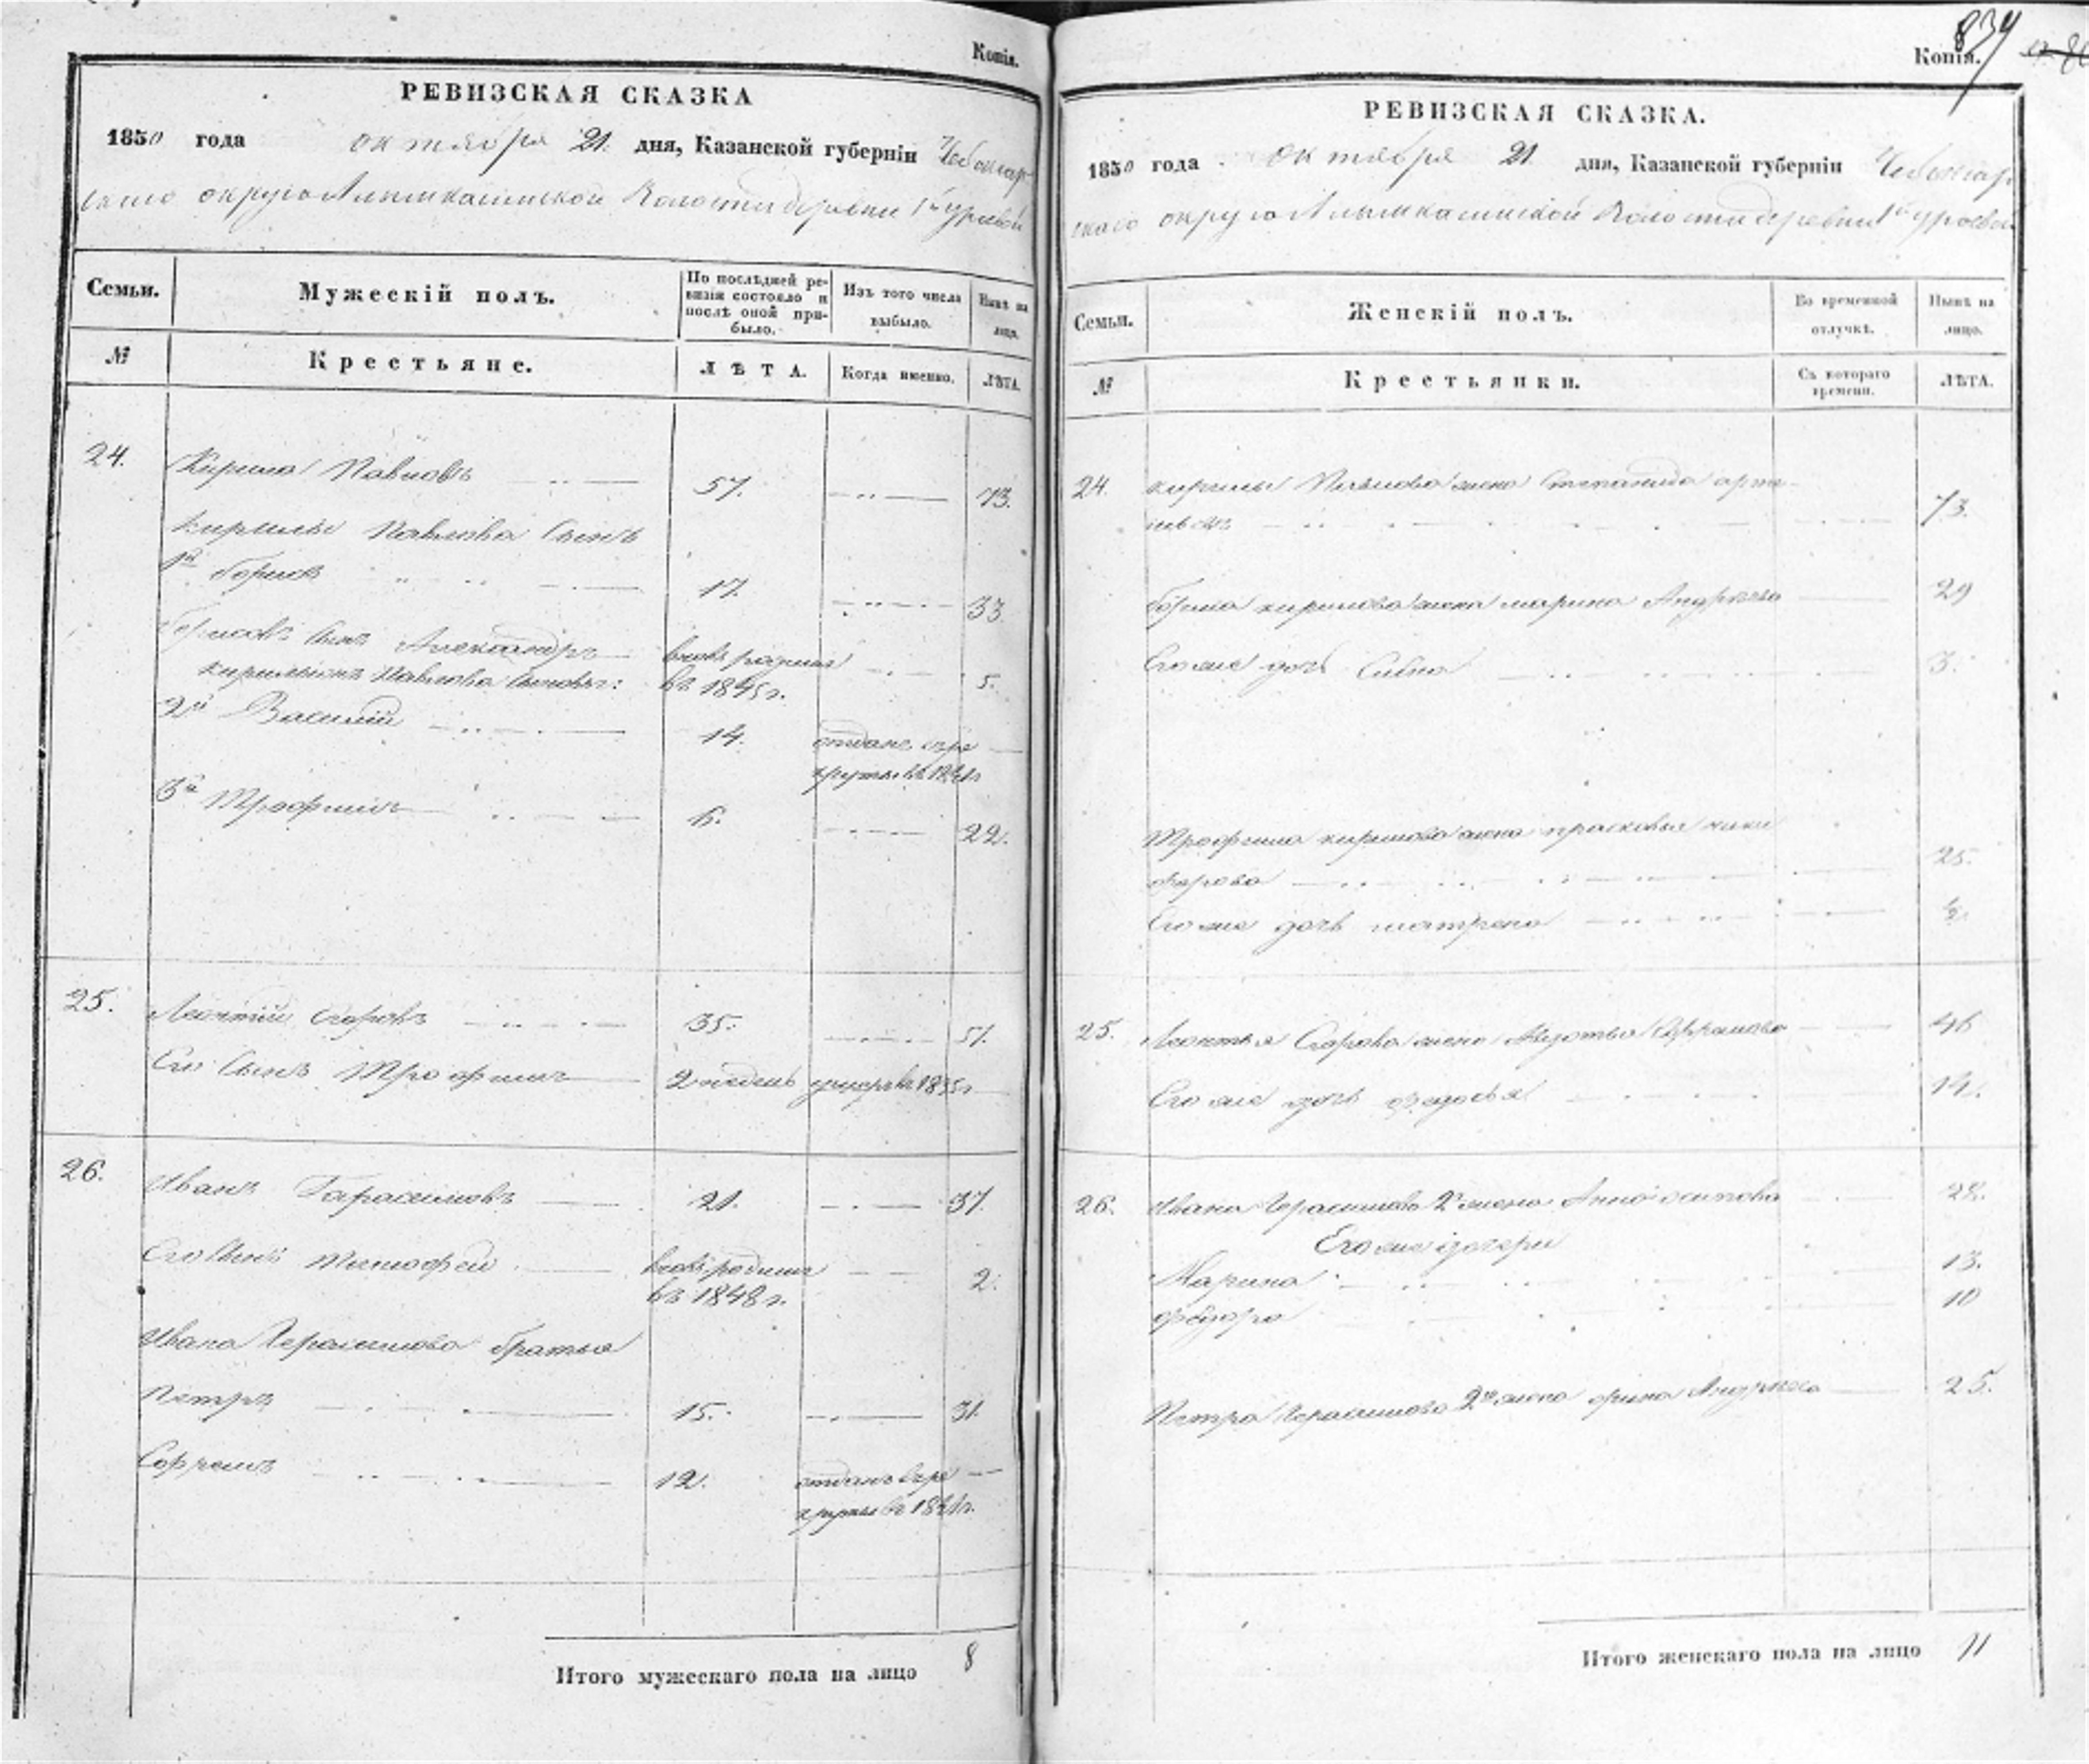 Копія.
РЕВИЗСКАЯ СКАЗКА
1850 года октября 21. дня, Казанской губерніи Чебоксар-
скаго округа Алымкасинской Волости деревни
Семьи.
Мужескій полъ.
По послѣдней ре-
визіи состояло и
послѣ оной при-
было.
Изъ того числа
выбыло.
Нынѣ на
лицо.
№
Крестьяне.
ЛѢТА.
Когда именно.
ЛѢТА.
24. Кирила Павловъ 57. 73.
Кирилы Павлова Сынъ
1й борисъ 17. 33.
борисовъ Сынъ Александръ вновь родился 5.
Кириловы Павлова Сыновья: въ 1845 г.
2й Василій 14. отданъ въ ре
круты въ 1841 г
3й Трофимъ 6. 22.
25. Леонтій Егоровъ 35. 51.
Его Сынъ Трофимъ 2 недель умеръ въ 1835 г
26. Иванъ Гарасимовъ 21. 37.
Его Сынъ Тимофей вновь родился 2.
въ 1848 г.
Ивана Герасимова братья
Петръ 15. 31.
Ефремъ 12. отданъ въ ре
круты въ 1841 г.
Итого мужескаго пола на лицо 8
834
Копія.
РЕВИЗСКАЯ СКАЗКА.
1850 года октября 21 дня, Казанской губерніи Чебоксар
скаго округа Алымкасинской Волости деревни
Семьи.
Женскій полъ.
Во временной
отлучкѣ.
Нынѣ на
лицо.
№
Крестьянки.
Съ котораго
времени.
ЛѢТА.
24. Кирилы Павлова жена Степанида арте-
мьева 73.
бориса кирилова жена марина Андрѣева 29
Его же дочь 3.
Трофима кирилова жена прасковья ники
форова 25.
Его же дочь матрена ½
25. Леонтья Егорова жена Авдотья Ефремова 46
Его же дочь федосья 14.
26. Ивана Герасимова 2я жена Анна осипова 28.
Его же дочери
Марина 13.
федора 10
Петра Герасимова 2я жена орина Андрѣева 25.
Итого женскаго пола на лицо 11